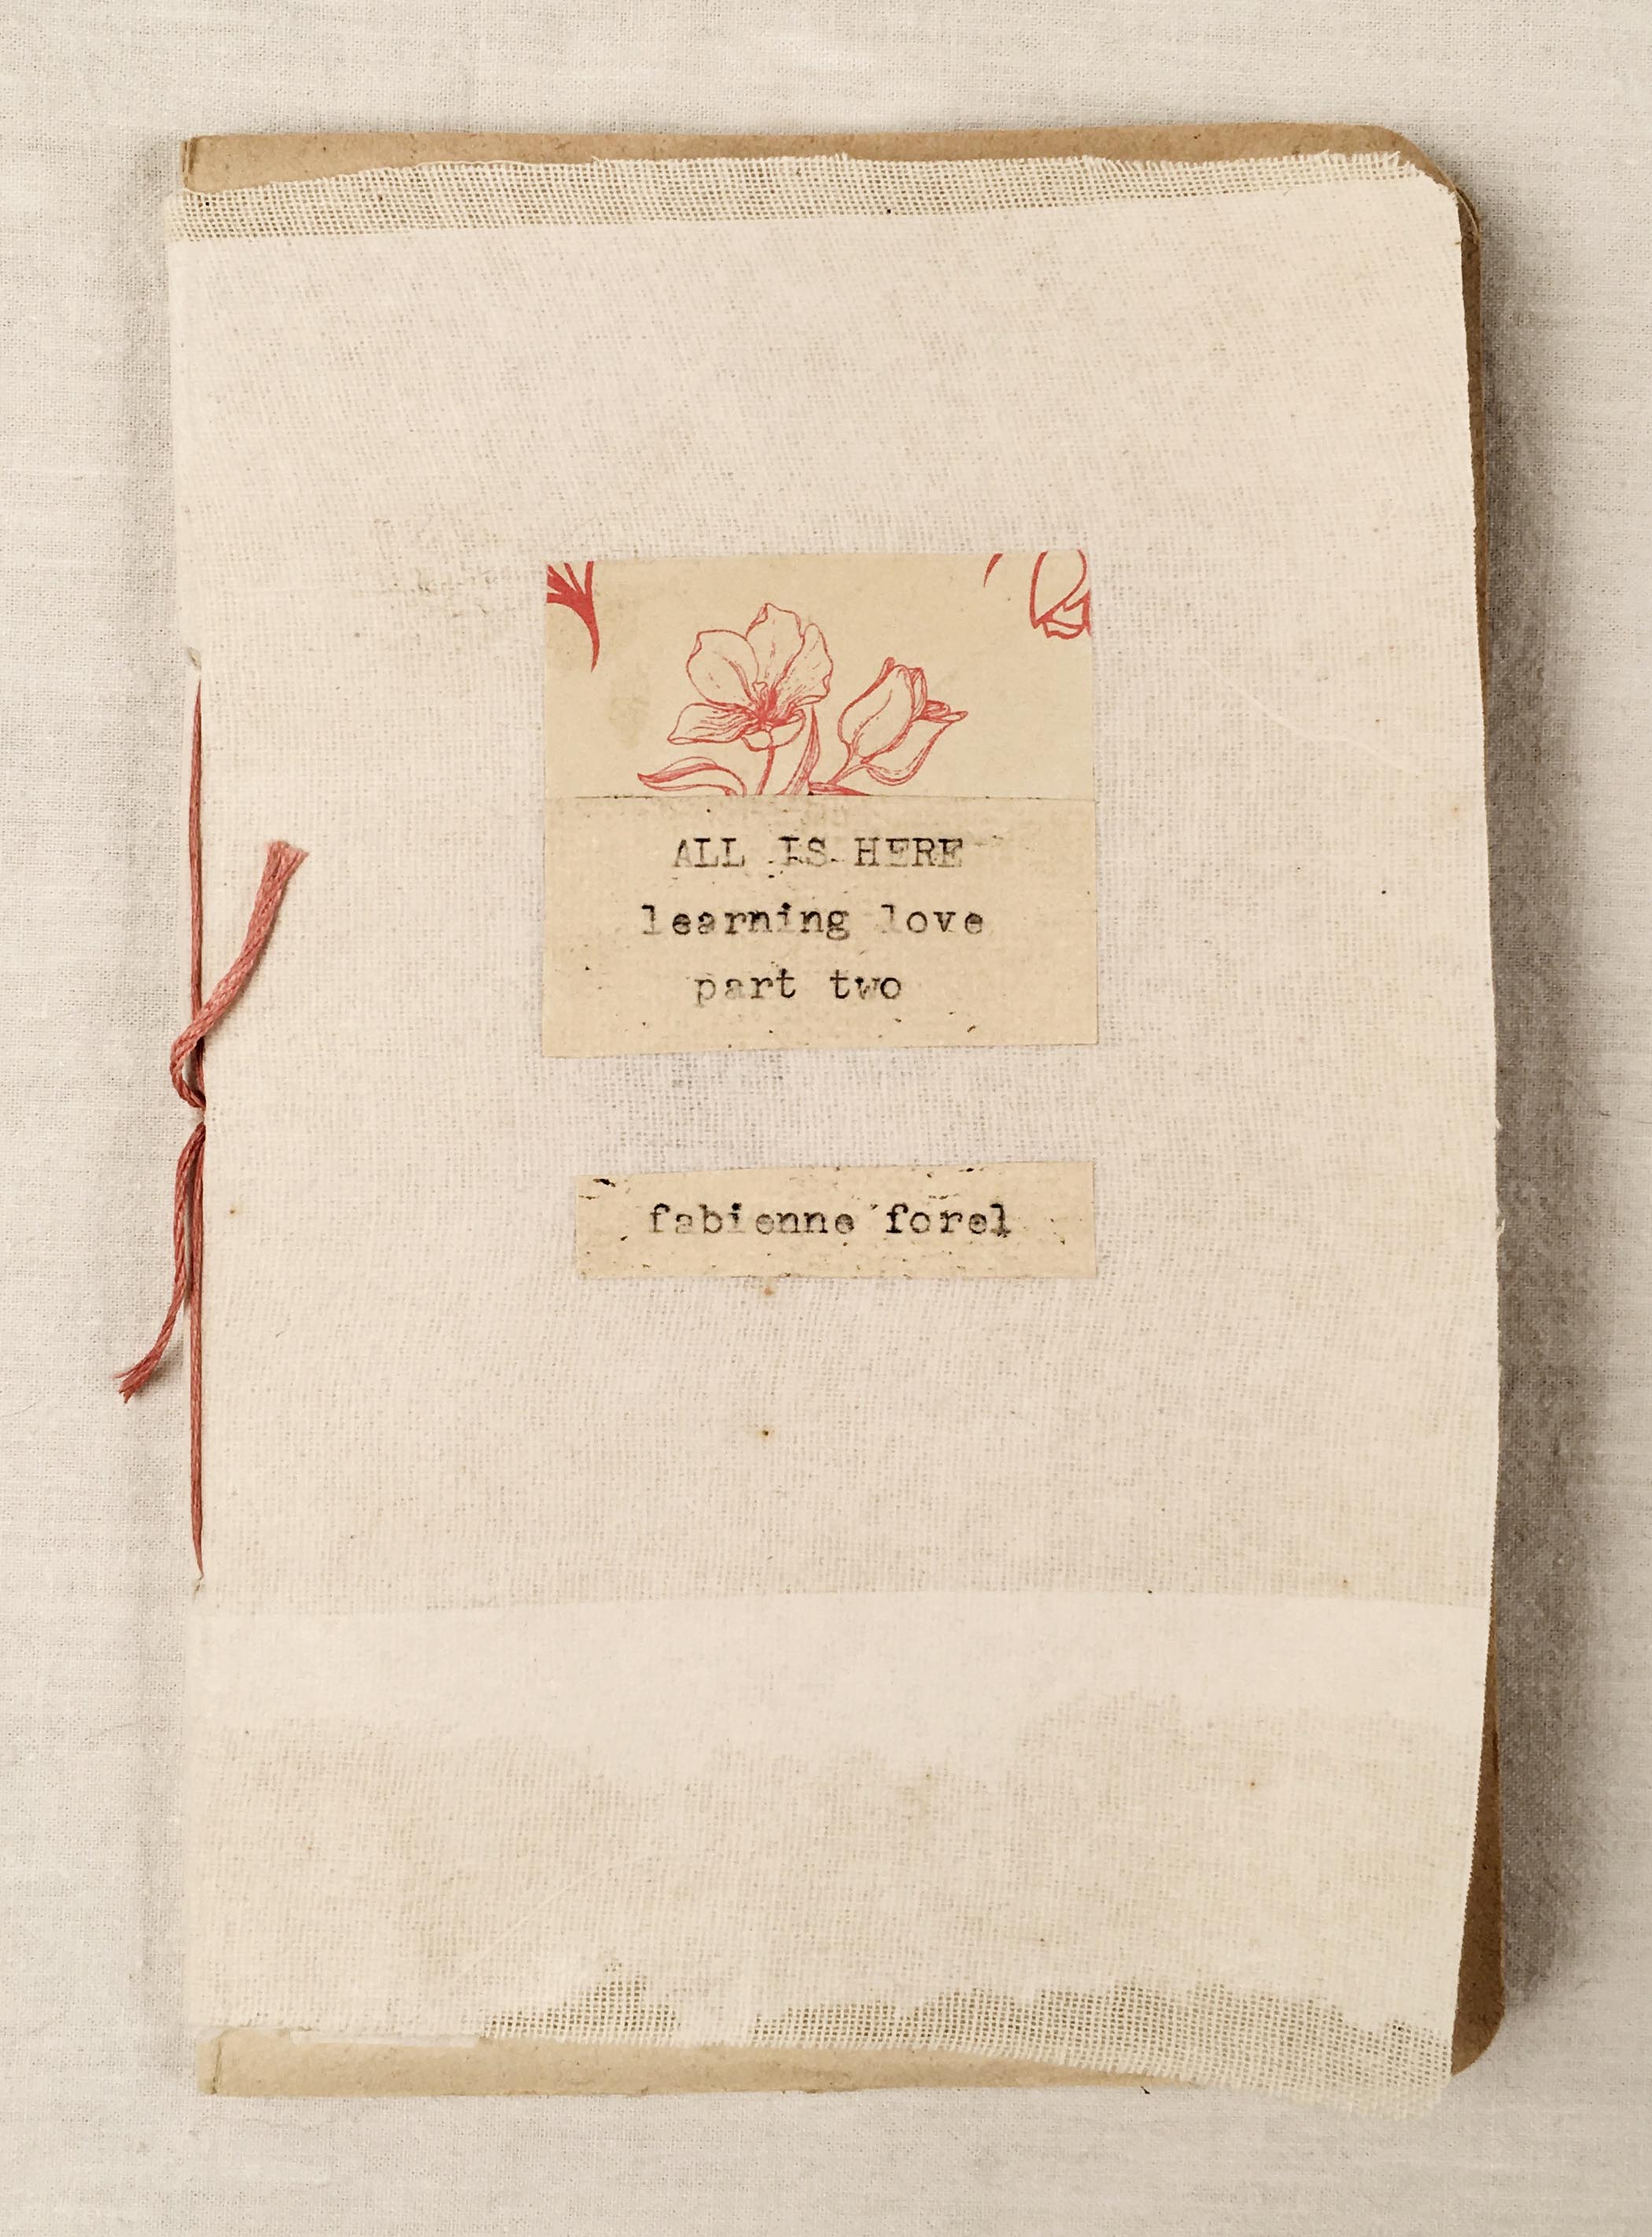 ALL IS HERE
learning love
part two
fabienne forel